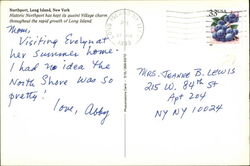 Northport, Long Island, New York
Historic Northport has kept its quaint Village charm
throughout the rapid growth of Long Island.
Mom,
Visiting Evelyn at
her Summer home.
I had no idea the
North Shore was so
pretty!
Love, Abby
MRS. JEANNE B. LEWIS
215 W. 84th St
Apt 204
NY NY 10024